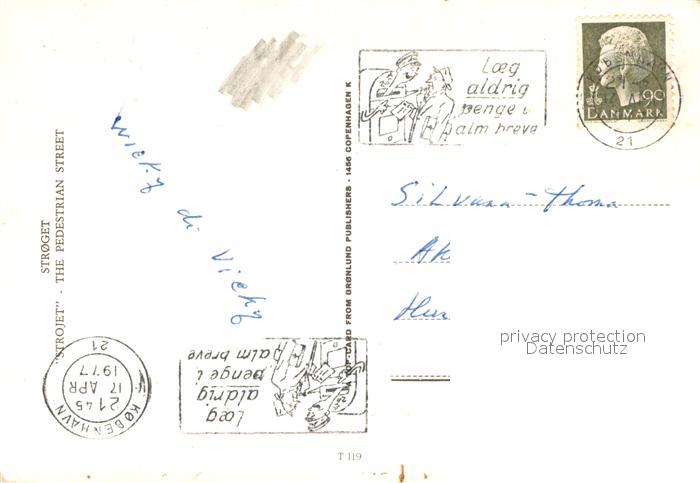 STRØGET
"STROJET" - THE PEDESTRIAN STREET
Wicky di Vicky
CARD FROM GRØNLUND PUBLISHERS - 1456 COPENHAGEN K
Læg
aldrig
penge i
alm breve
KØBENHAVN
21
90
DANMARK
Silvana - Thoma
Ak
Hur
privacy protection
Datenschutz
KØBENHAVN
2145
17 APR
1977
21
Læg
aldrig
penge i
alm breve
T 119